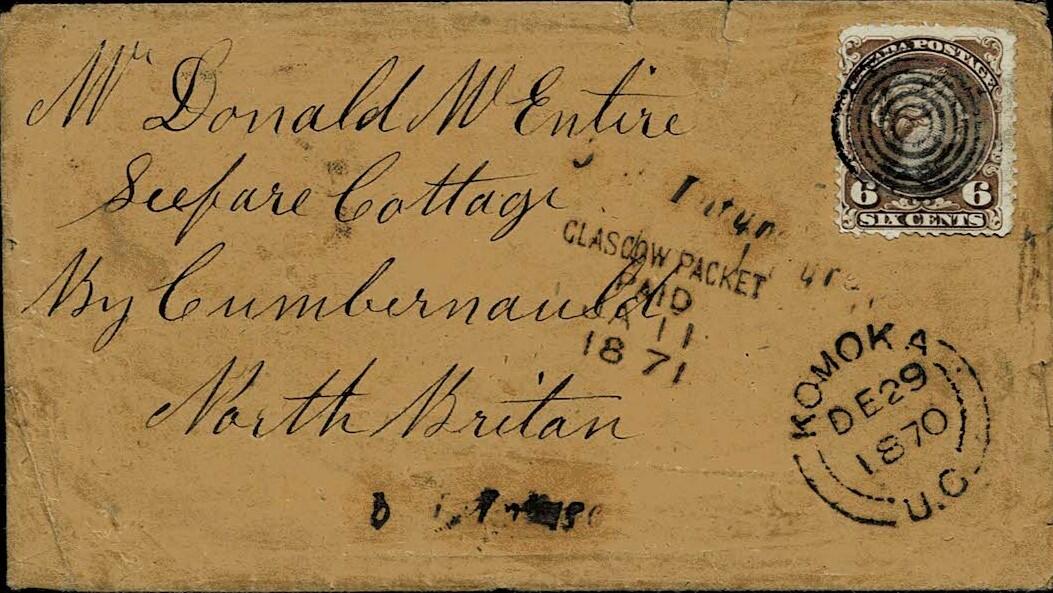 CANADA POSTAGE
6 6
SIX CENTS
Mr Donald McEntire
Seefare Cottage
By Cumbernauld
North Britan
GLASGOW PACKET
PAID
JA 11
1871
KOMOKA
DE 29
1870
U.C.